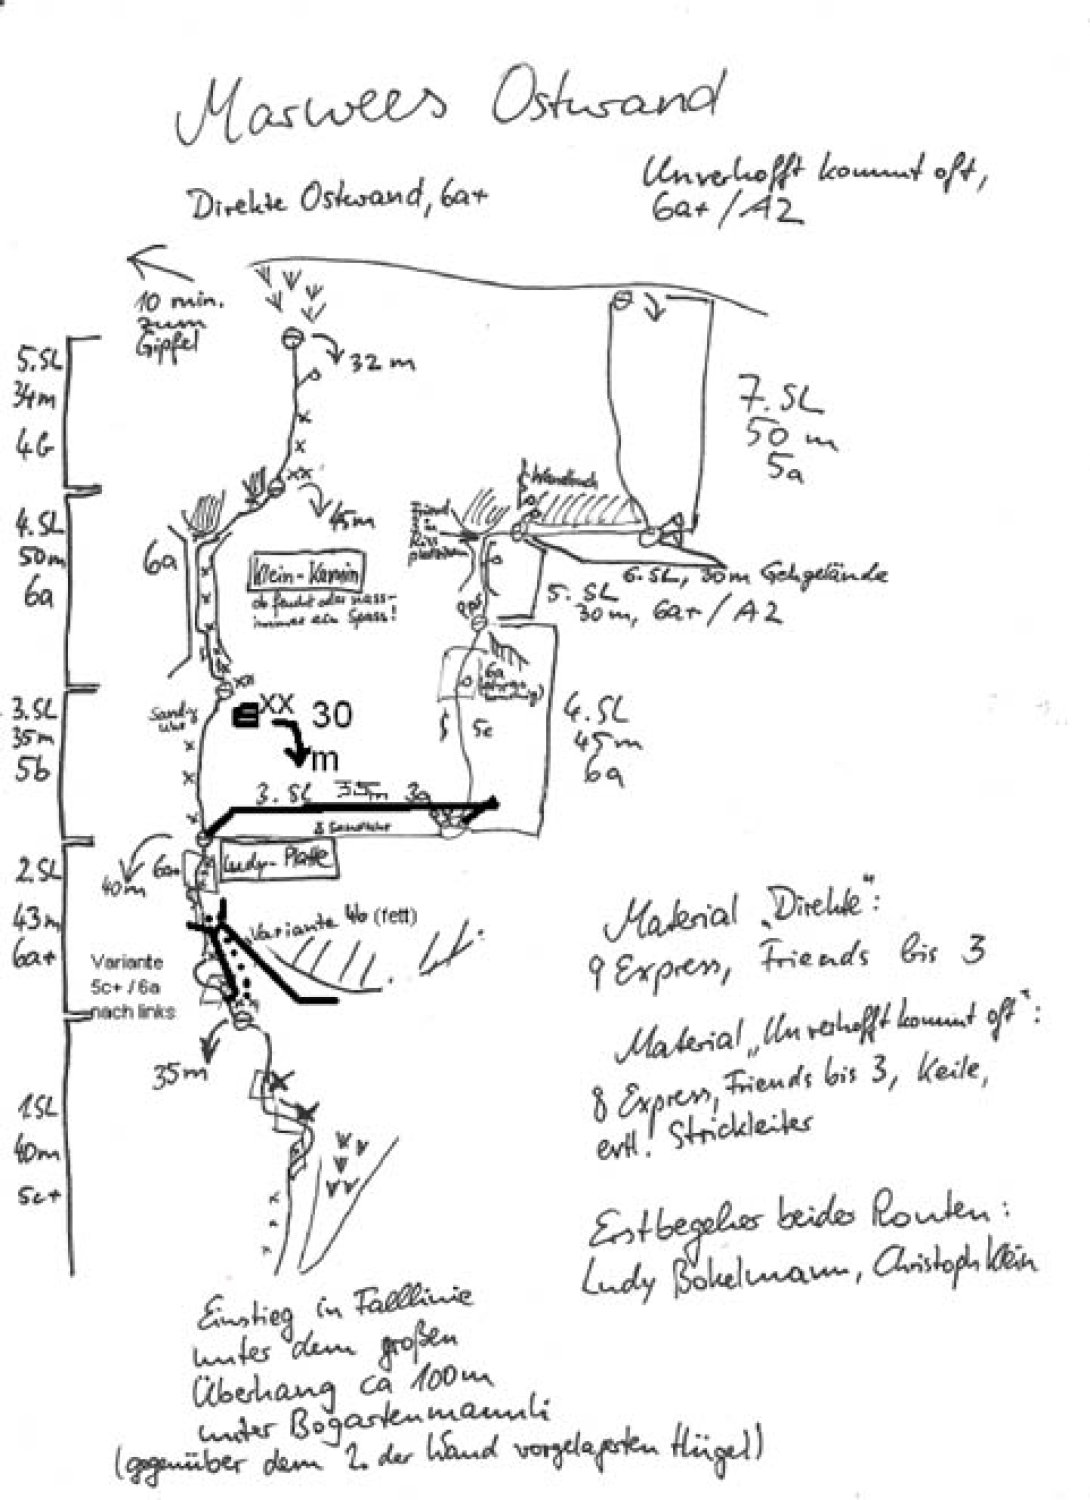 Marwees Ostwand
Direkte Ostwand, 6a+
Unverhofft kommt oft,
6a+/A2
10 min.
zum
Gipfel
32 m
5.SL
34m
4b
7. SL
50 m
5a
45m
Wandbuch
Friend
in
Riss
4.SL
50m
6a
6a
Klein-Kamin
ob feucht oder nass-
immer ein Spass!
6. SL, 30m Gehgelände
5. SL
30m, 6a+/A2
6a
5c
4. SL
45m
6a
3.SL
35m
5b
Sand-
uhr
XX 30
m
3. SL 35m 3a
2 Sanduhr
Ludy-Platte
6a+
40m
2.SL
43m
6a+
Variante 4b (fett)
Variante
5c+ / 6a
nach links
35m
1SL
40m
5c+
Material „Direkte":
9 Express, Friends bis 3
Material „Unverhofft kommt oft":
8 Express, Friends bis 3, Keile,
evtl. Strickleiter
Erstbegeher beider Routen:
Ludy Bokelmann, Christoph Klein
Einstieg in Falllinie
unter dem großen
Überhang ca 100m
unter Bogartenmannli
(gegenüber dem 2. der Wand vorgelagerten Hügel)